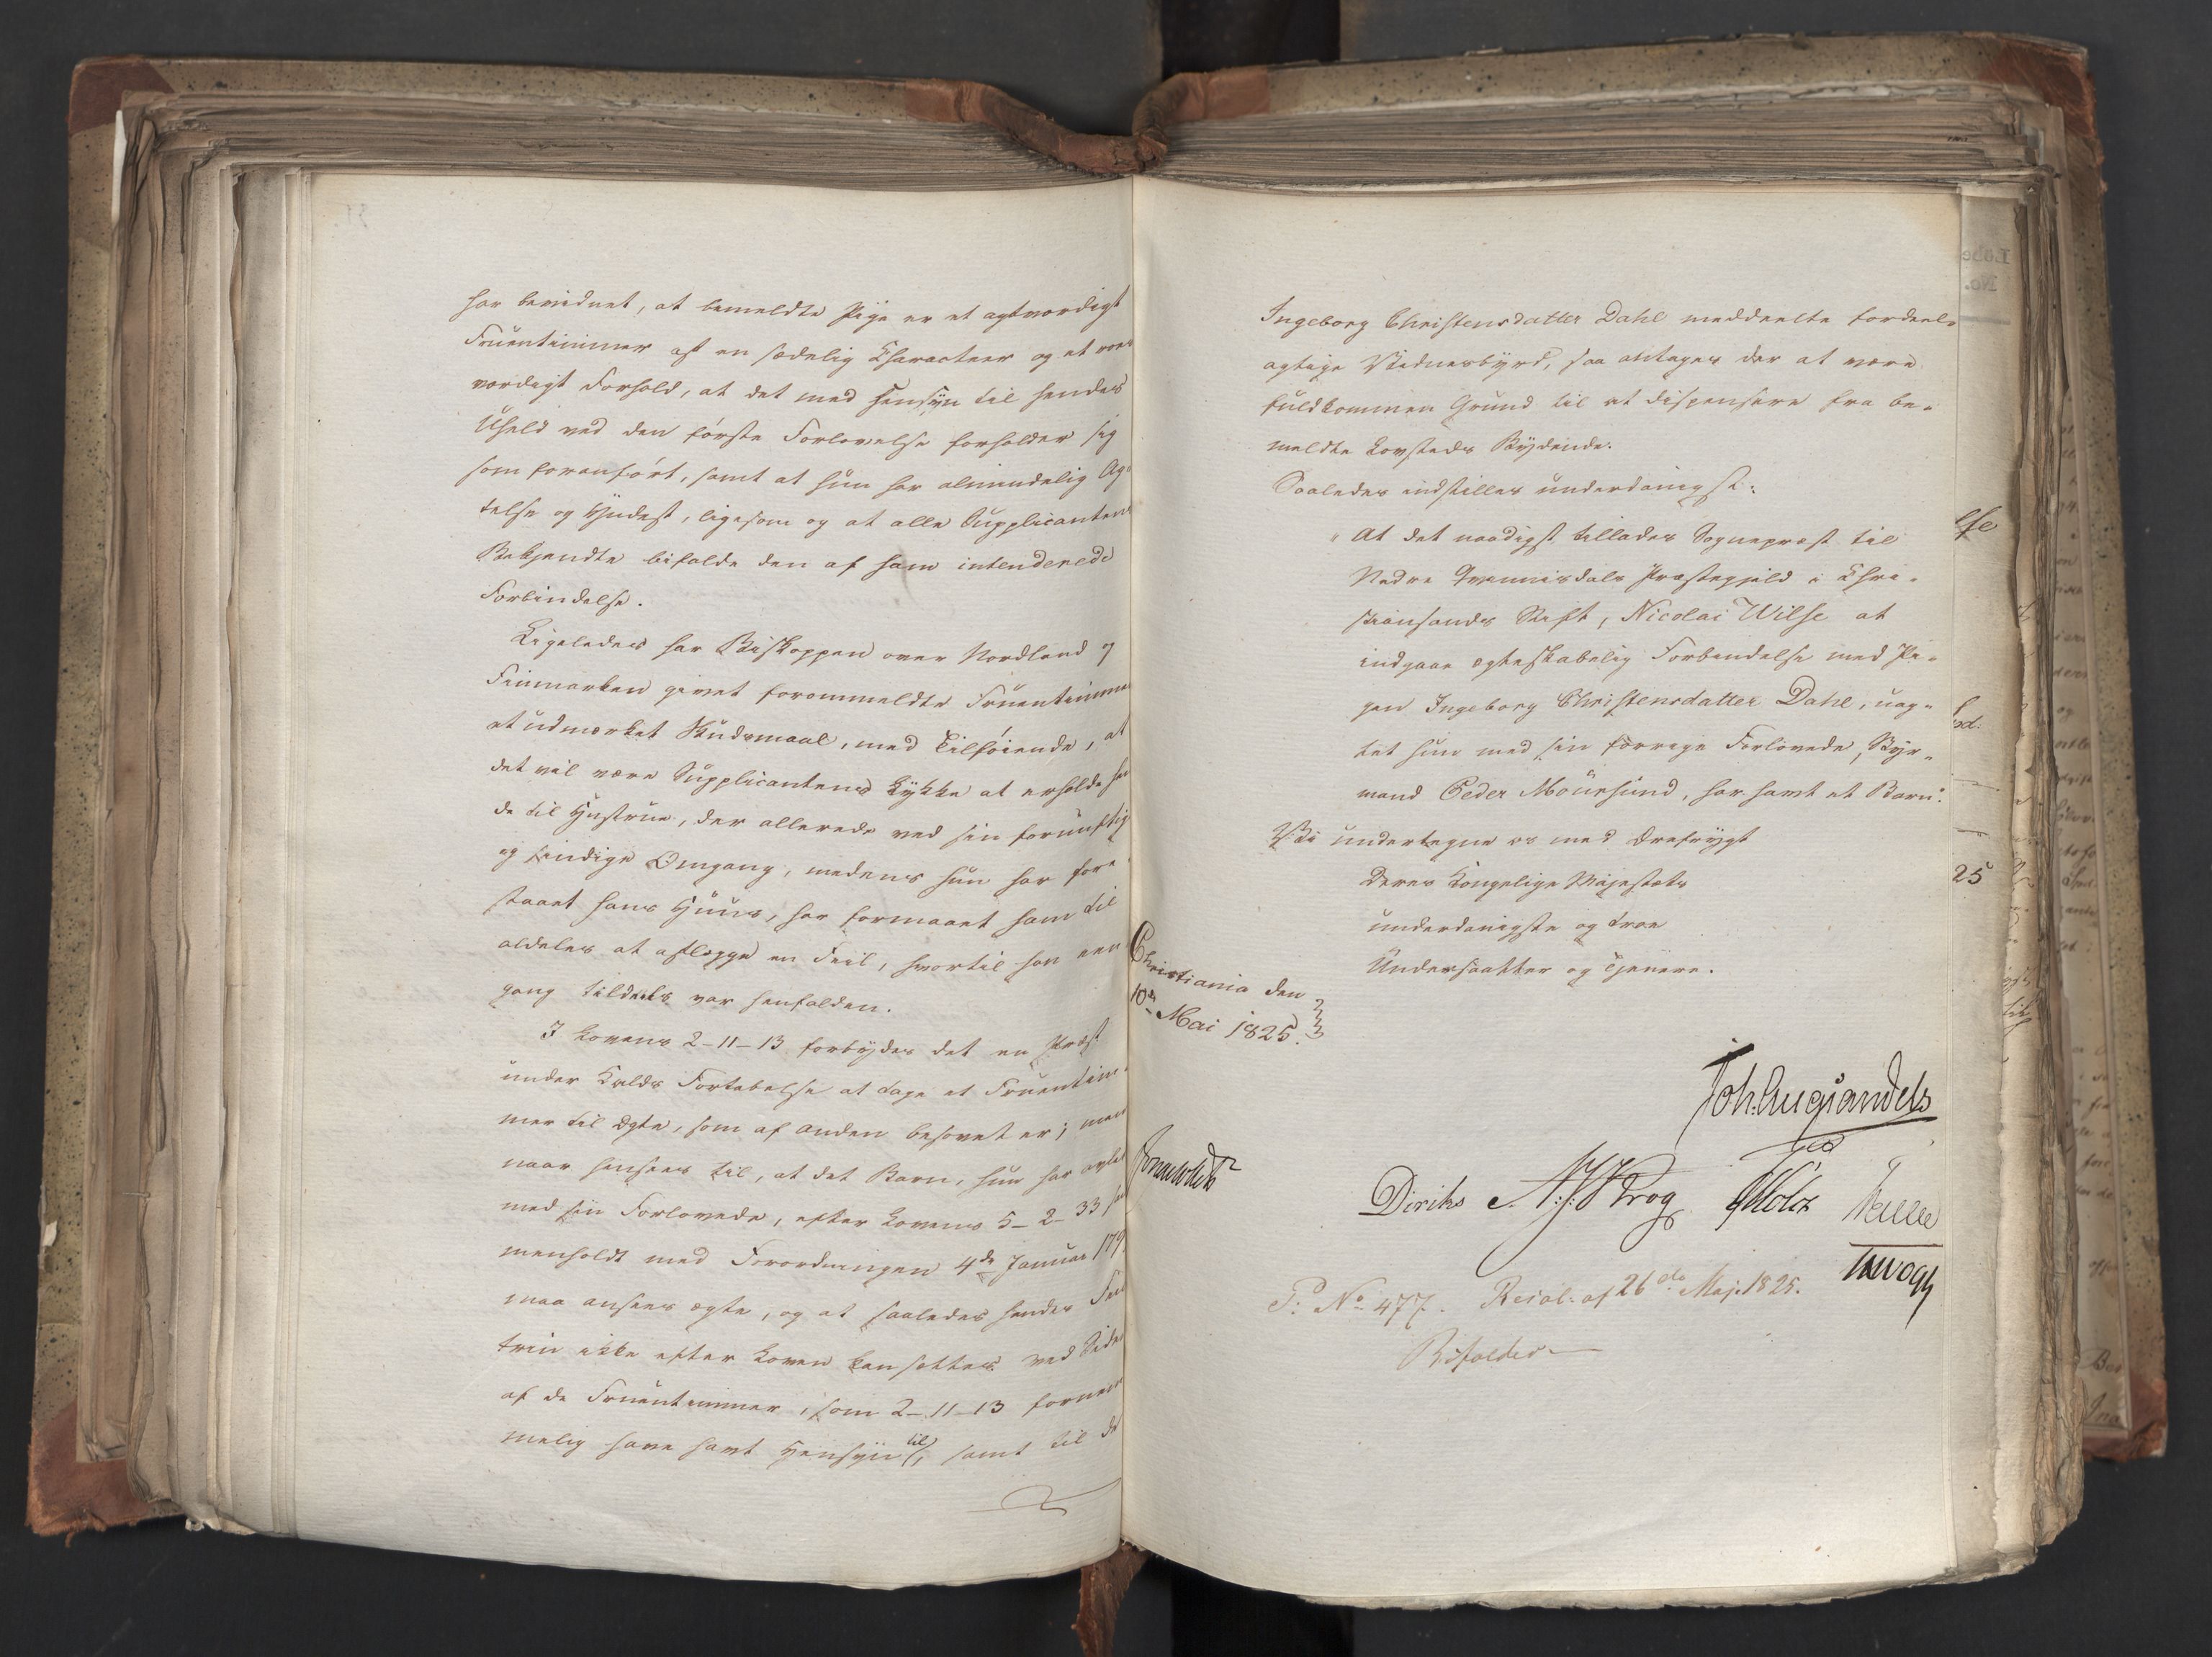 har bevidnet, at bemeldte Pige er et agtværdigt
Fruentimmer af en sædelig Character og et roes
værdigt Forhold, at det med Hensyn til hendes
Uheld ved den første Forlovelse forholder sig
som foranført, samt at hun har almindelig Ag-
telse og Yndest, ligesom og at alle Supplicantens
Bekjendte bifalde den af ham intenderede
Forbindelse.
Ligeledes har Biskoppen over Nordland og
Finmarken givet forommeldte Fruentimme
et udmærket Skudsmaal, med Tilføiende, at
det vil være Supplicantens Lykke at erholde hen
de til Hustrue, der allerede ved sin fornuftig
og sindige Omgang, medens hun har fore
staaet hans Huus, har formaaet ham til
aldeles at aflægge en Feil, hvortil han een
gang tildeels var henfalden.
I Lovens 2-11-13 forbydes det en Præst
under Kalds Fortabelse at tage et Fruentim-
mer til Ægte, som af anden besovet er; men
naar hensees til, at det Barn, hun har avlet
med sin Forlovede, efter Lovens 5-2-33 sam
menholdt med Forordningen 4de Januar 179
maa ansees ægte, og at saaledes hendes Feil
trin ikke efter Loven kan sættes ved Siden
af de Fruentimmer, som 2-11-13 fornem
melig have havt Hensyn til, samt til de
Ingeborg Christensdatter Dahl meddeelte fordeel-
agtige Vidnesbyrd, saa antages der at være
fuldkommen Grund til at dispensere fra be-
meldte Lovsteds Bydende.
Saaledes indstilles underdanigst:
" At det naadigst tillades Sognepræst til
Nedre Qvinnisdals Præstegjeld i Chri-
stiansands Stift, Nicolai Wilse at
indgaae ægteskabelig Forbindelse med Pi-
gen Ingeborg Christensdatter Dahl, uag-
tet hun med sin forrige Forlovede, Styr-
mand Peder Moursund, har havt et Barn".
Vi undertegne os med Ærefrygt
Deres Kongelige Majestæts
underdanigste og troe
Undersaatter og Tjenere.
Christiania den
10de Mai 1825.
Joh. Aug. Sandels
Diriks
Krog
Motz
Fasting
P: No 477. Resol: af 26de Maj 1825.
Bifaldes